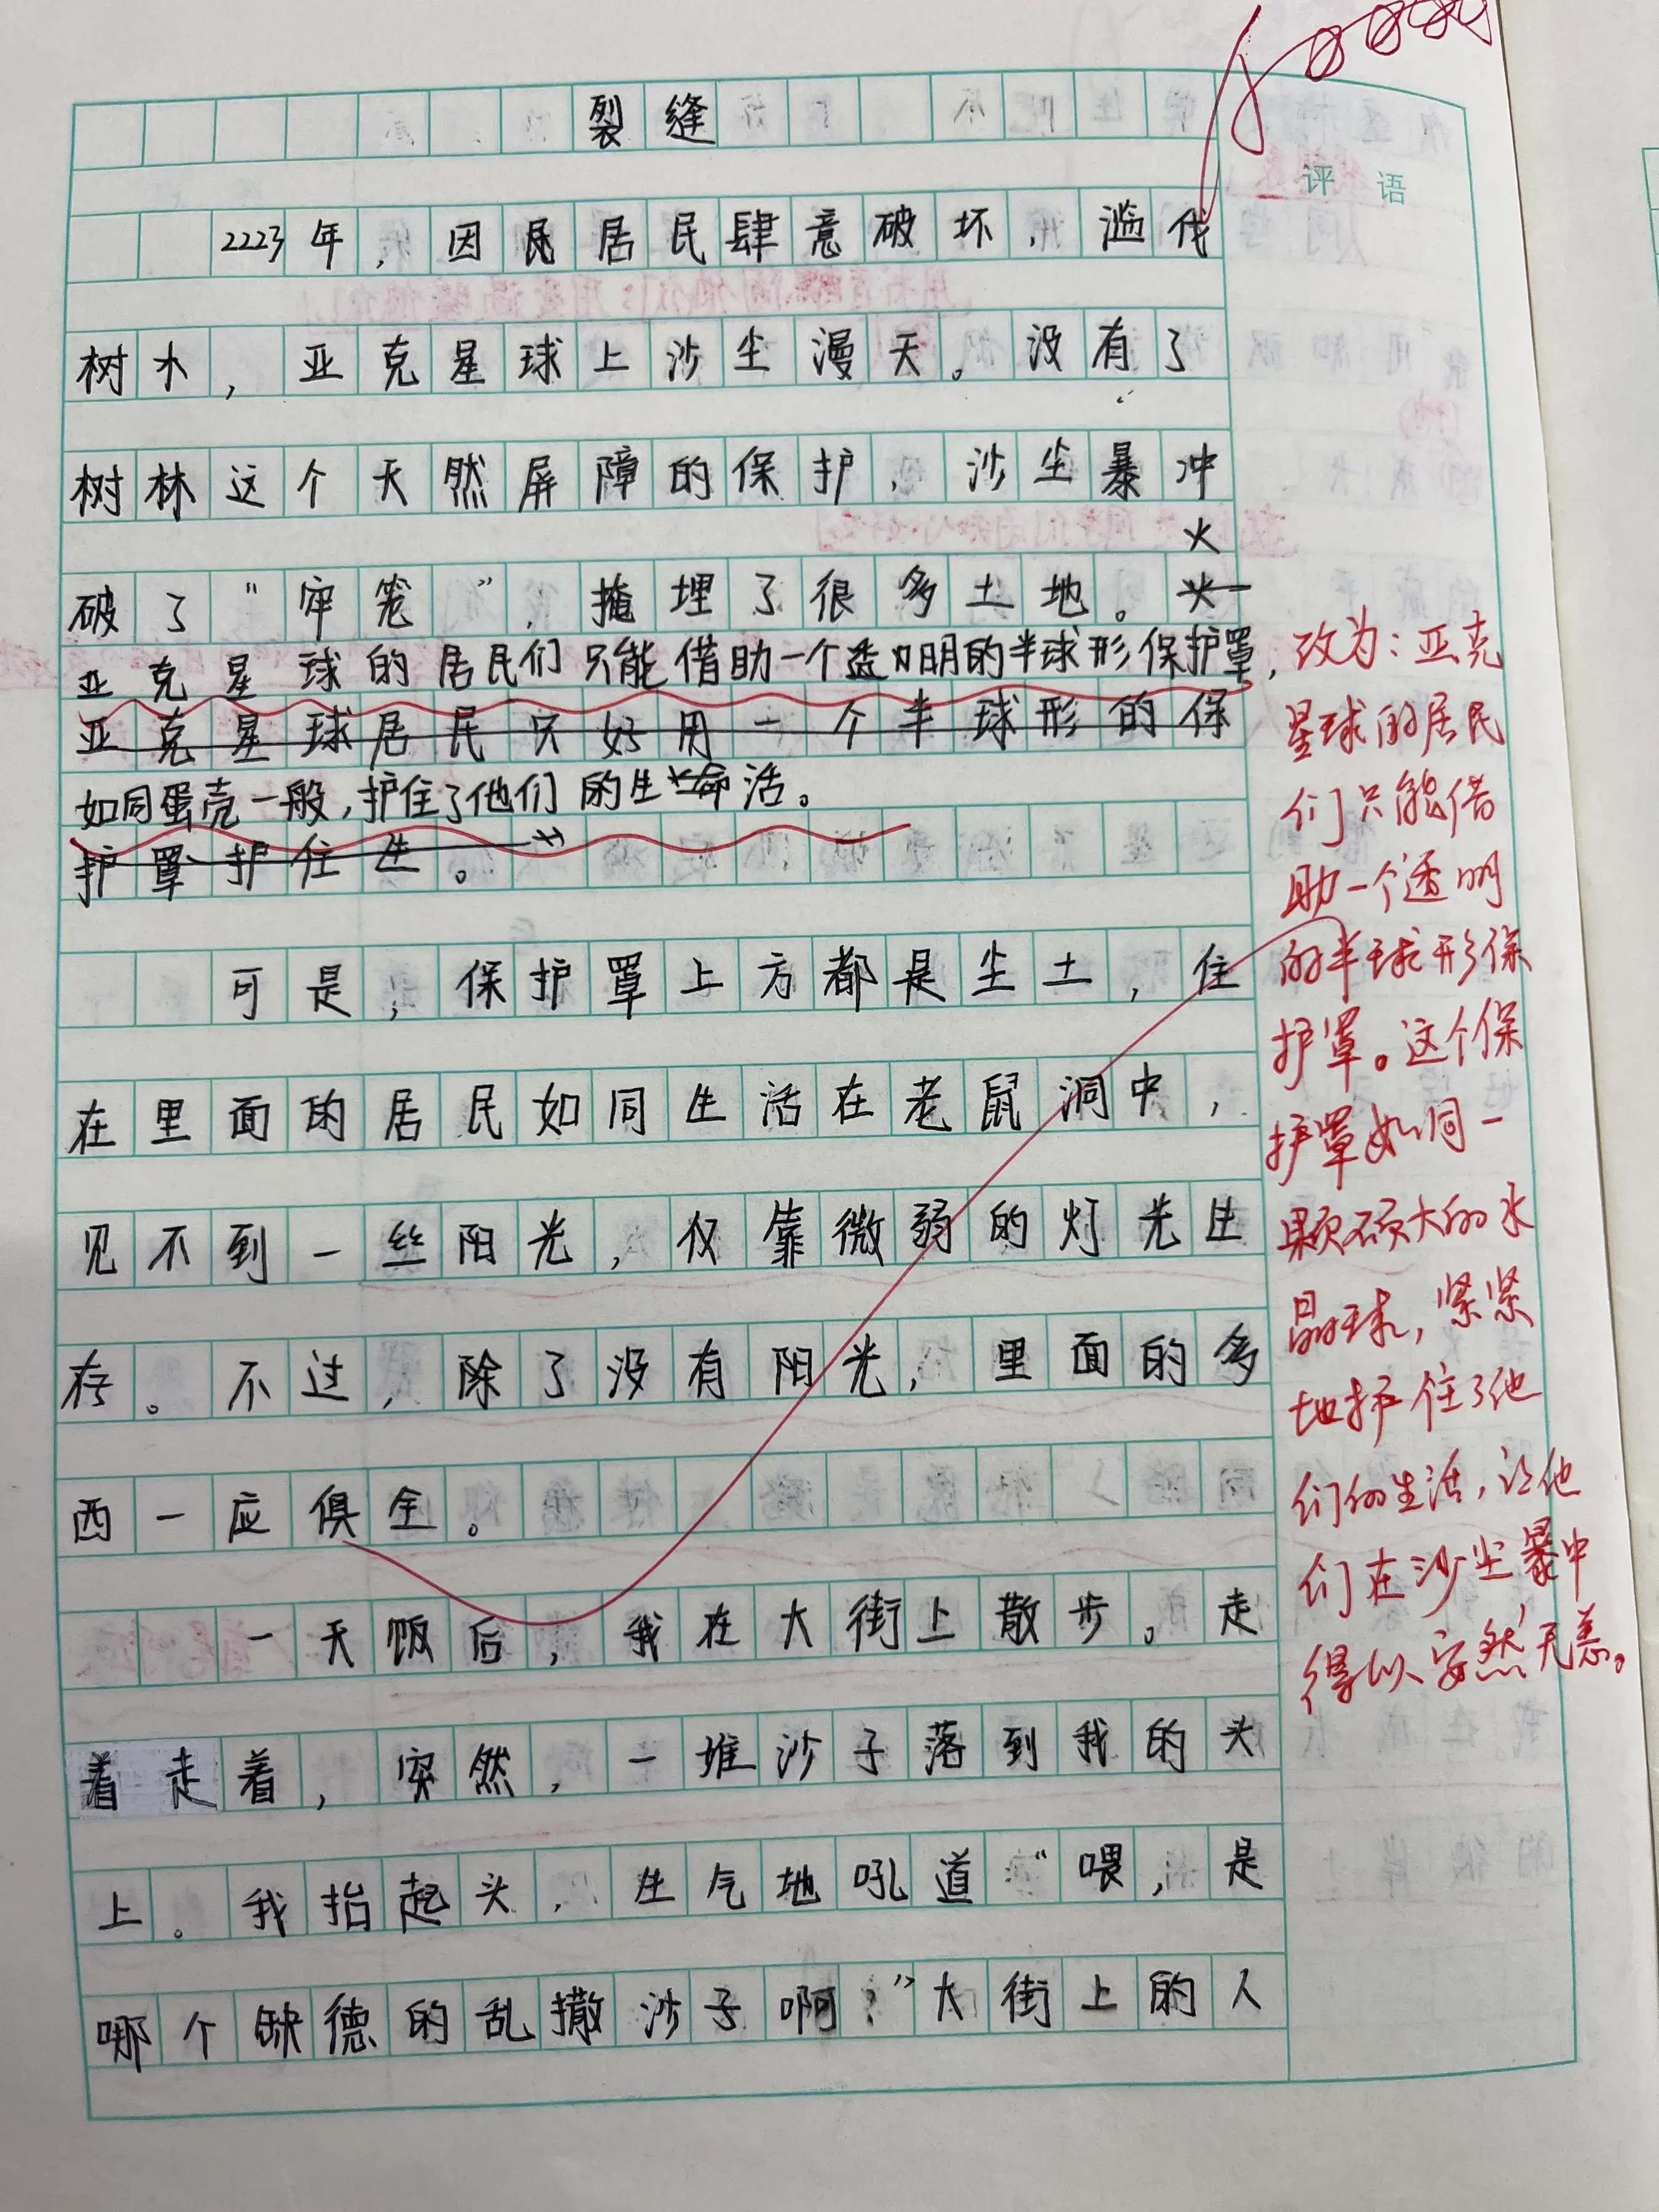 裂缝
评语
2223年，因民居民肆意破坏，滥伐
树木，亚克星球上沙尘漫天。没有了
树林这个天然屏障的保护，沙尘暴冲
火
破了“牢笼”，掩埋了很多土地。
亚克星球的居民们只能借助一个透明的半球形保护罩，
亚克星球居民只好用一个半球形的保
如同蛋壳一般，护住了他们的生命活。
护罩护住生。
可是，保护罩上方都是尘土，住
在里面的居民如同生活在老鼠洞中，
见不到一丝阳光，仅靠微弱的灯光生
存。不过，除了没有阳光，里面的多
西一应俱全。
一天饭后，我在大街上散步。走
着走着，突然，一堆沙子落到我的头
上。我抬起头，生气地吼道“喂，是
哪个缺德的乱撒沙子啊？”大街上的人
改为：亚克
星球的居民
们只能借
助一个透明
的半球形保
护罩。这个保
护罩如同一
颗硕大的水
晶球，紧紧
地护住了他
们的生活，让他
们在沙尘暴中
得以安然无恙。